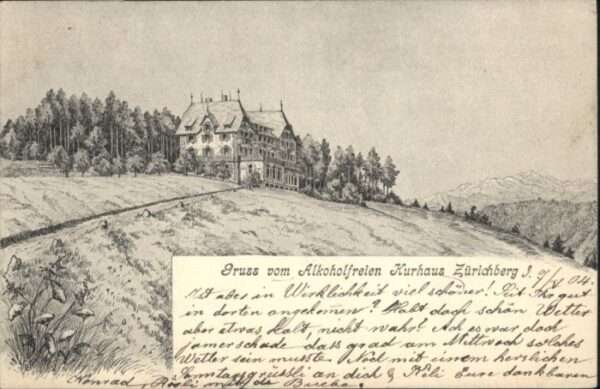 Gruss vom Alkoholfreien Kurhaus Zürichberg J. 9/X 04.
Ist aber in Wirklichkeit viel schöner! Seit Ihr gut
in dorten angekomen? Habt doch schön Wetter
aber etwas kalt, nicht wahr! Ach es war doch
jamerschade dass grad am Mittwoch solches
Wetter sein musste. Nöd mit einem herzlichen
Sonntagsgrüessli an dich & Eure dankbaren
Konrad